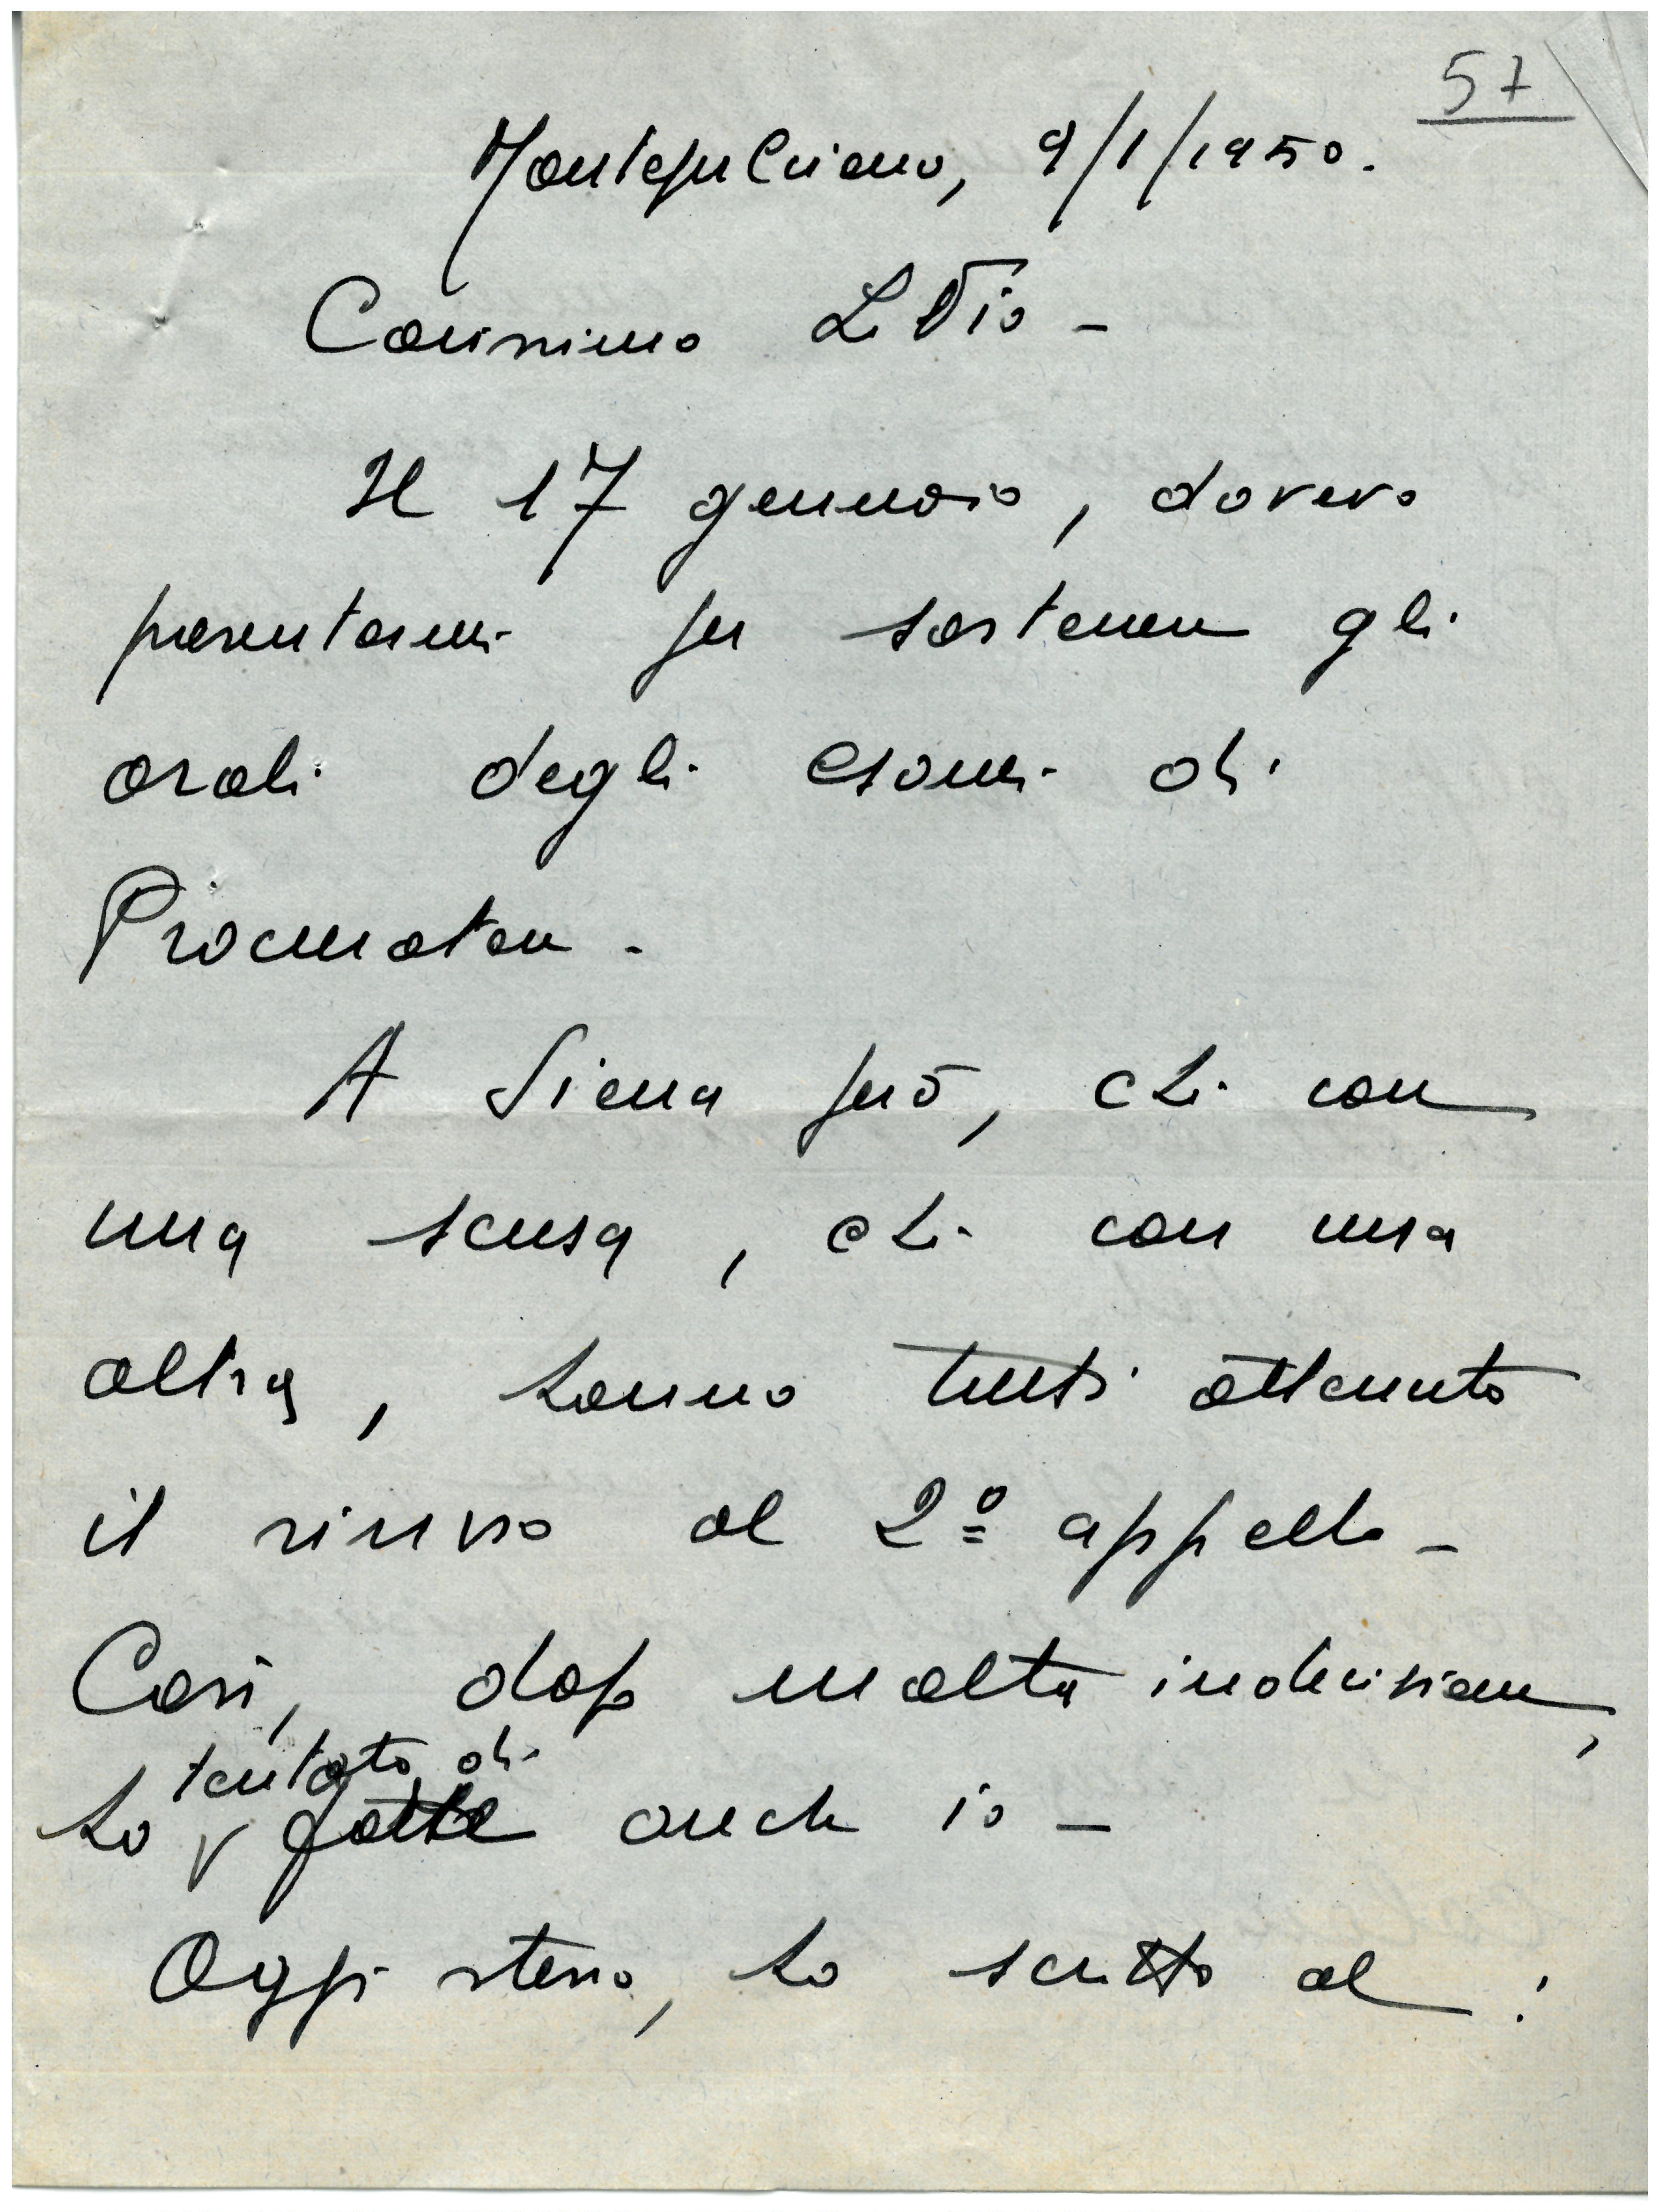 57
Montepulciano, 9/1/1950.
Carissimo Livio -
Il 17 gennaio, dovevo
presentarmi per sostenere gli
orali degli esami di
Procuratore -
A Siena però, chi con
una scusa, chi con una
altra, hanno tutti ottenuto
il rinvio al 2º appello -
Così, dopo molta indecisione,
tentato di
ho fatto anche io -
Oggi stesso, ho scritto al :